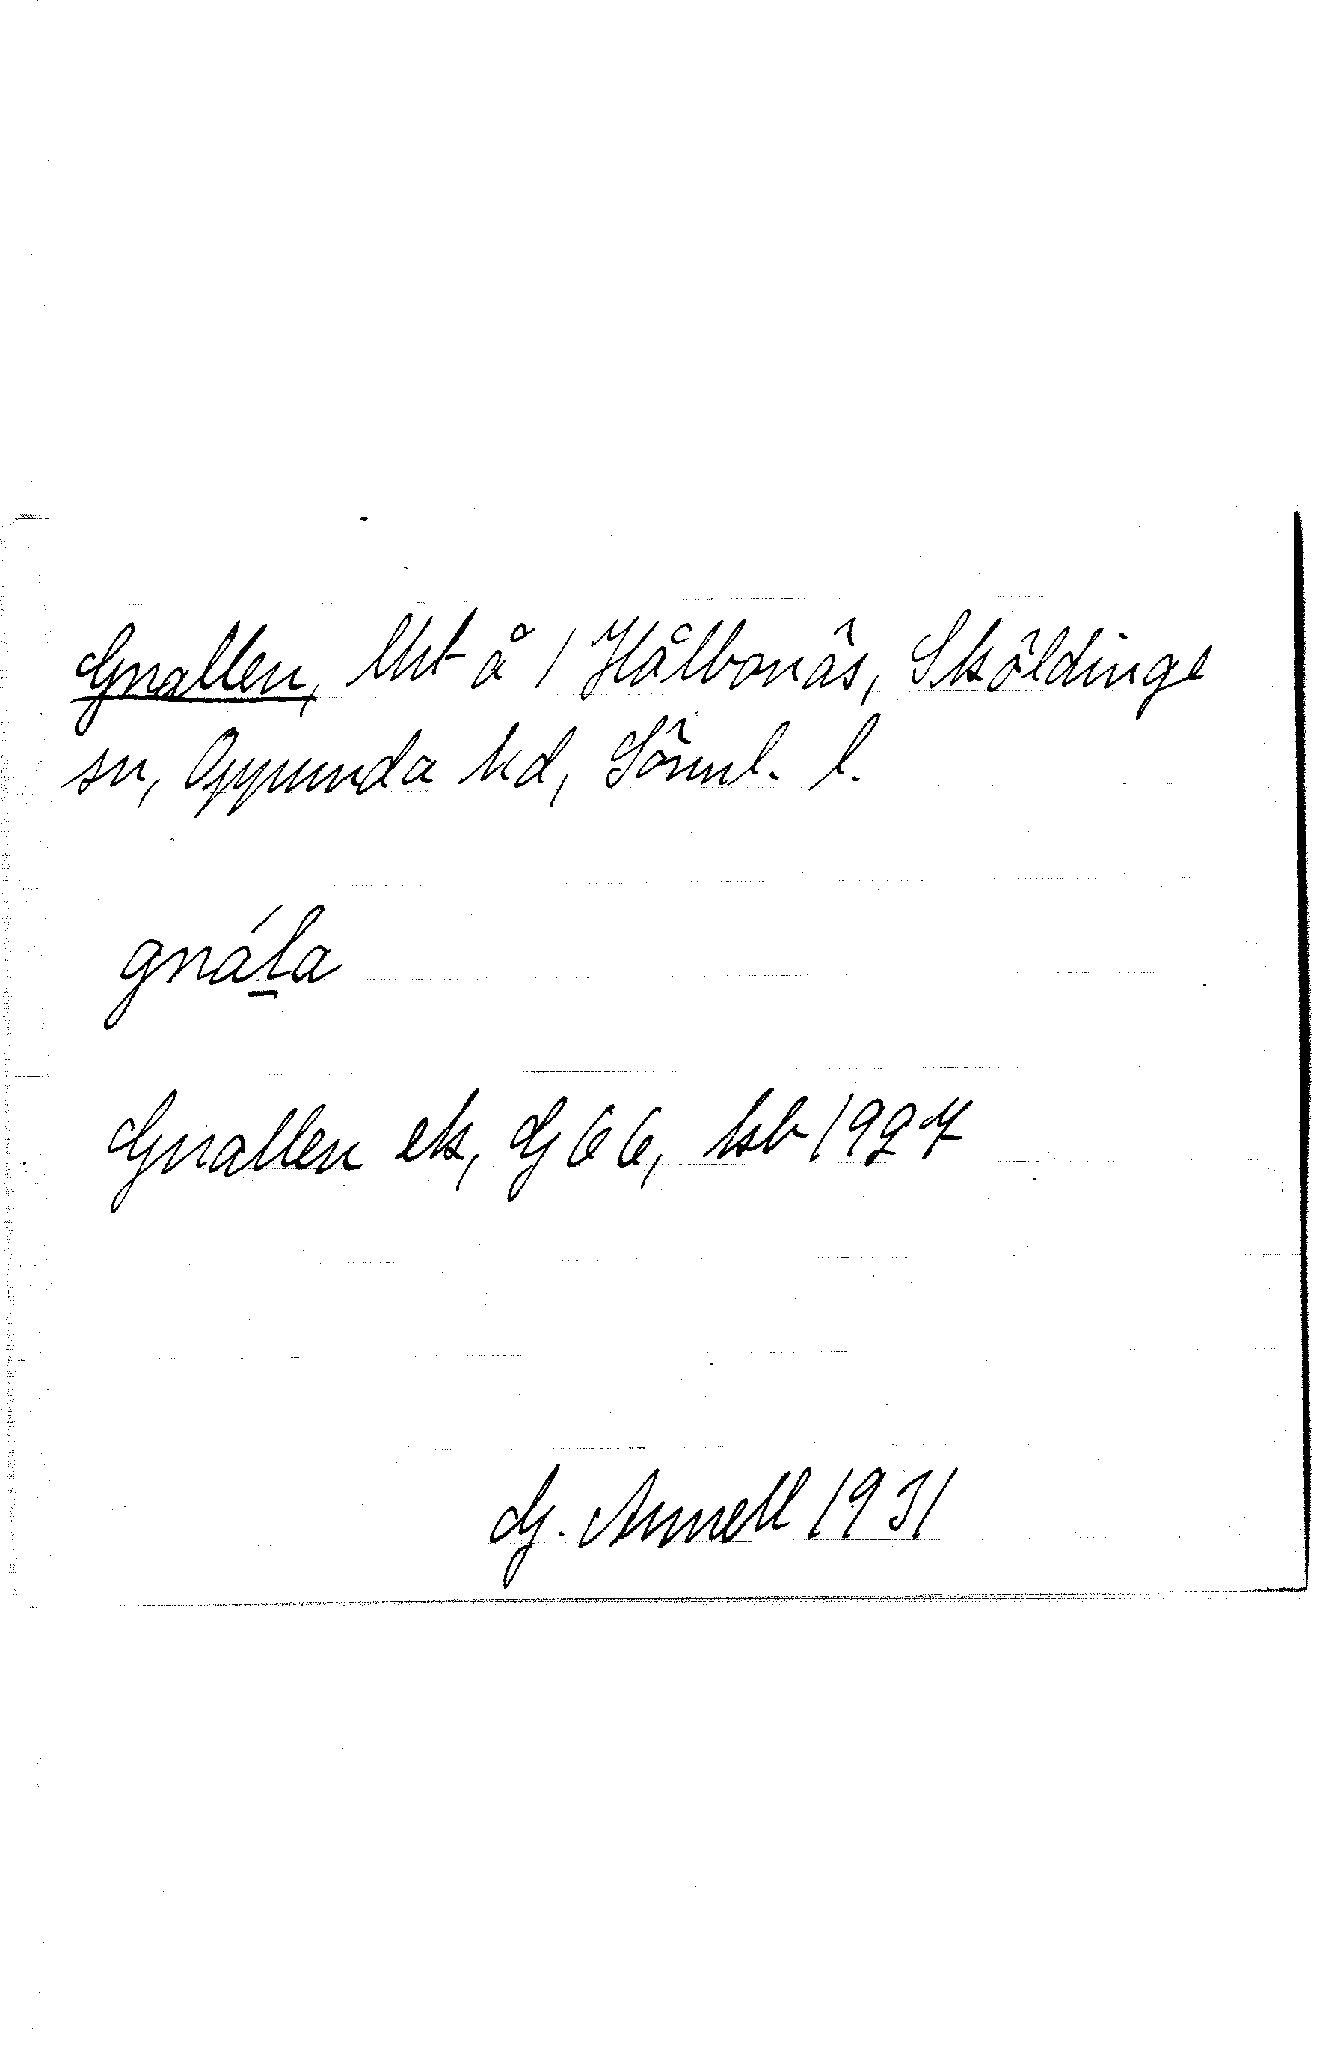 Gnallen, lht å 1 Hålbonäs, Sköldinge
sn, Oppunda hd, Sörml. l.
gnáḻa
Gnallen ek, G66, hsb 1927
G. Annell 1931